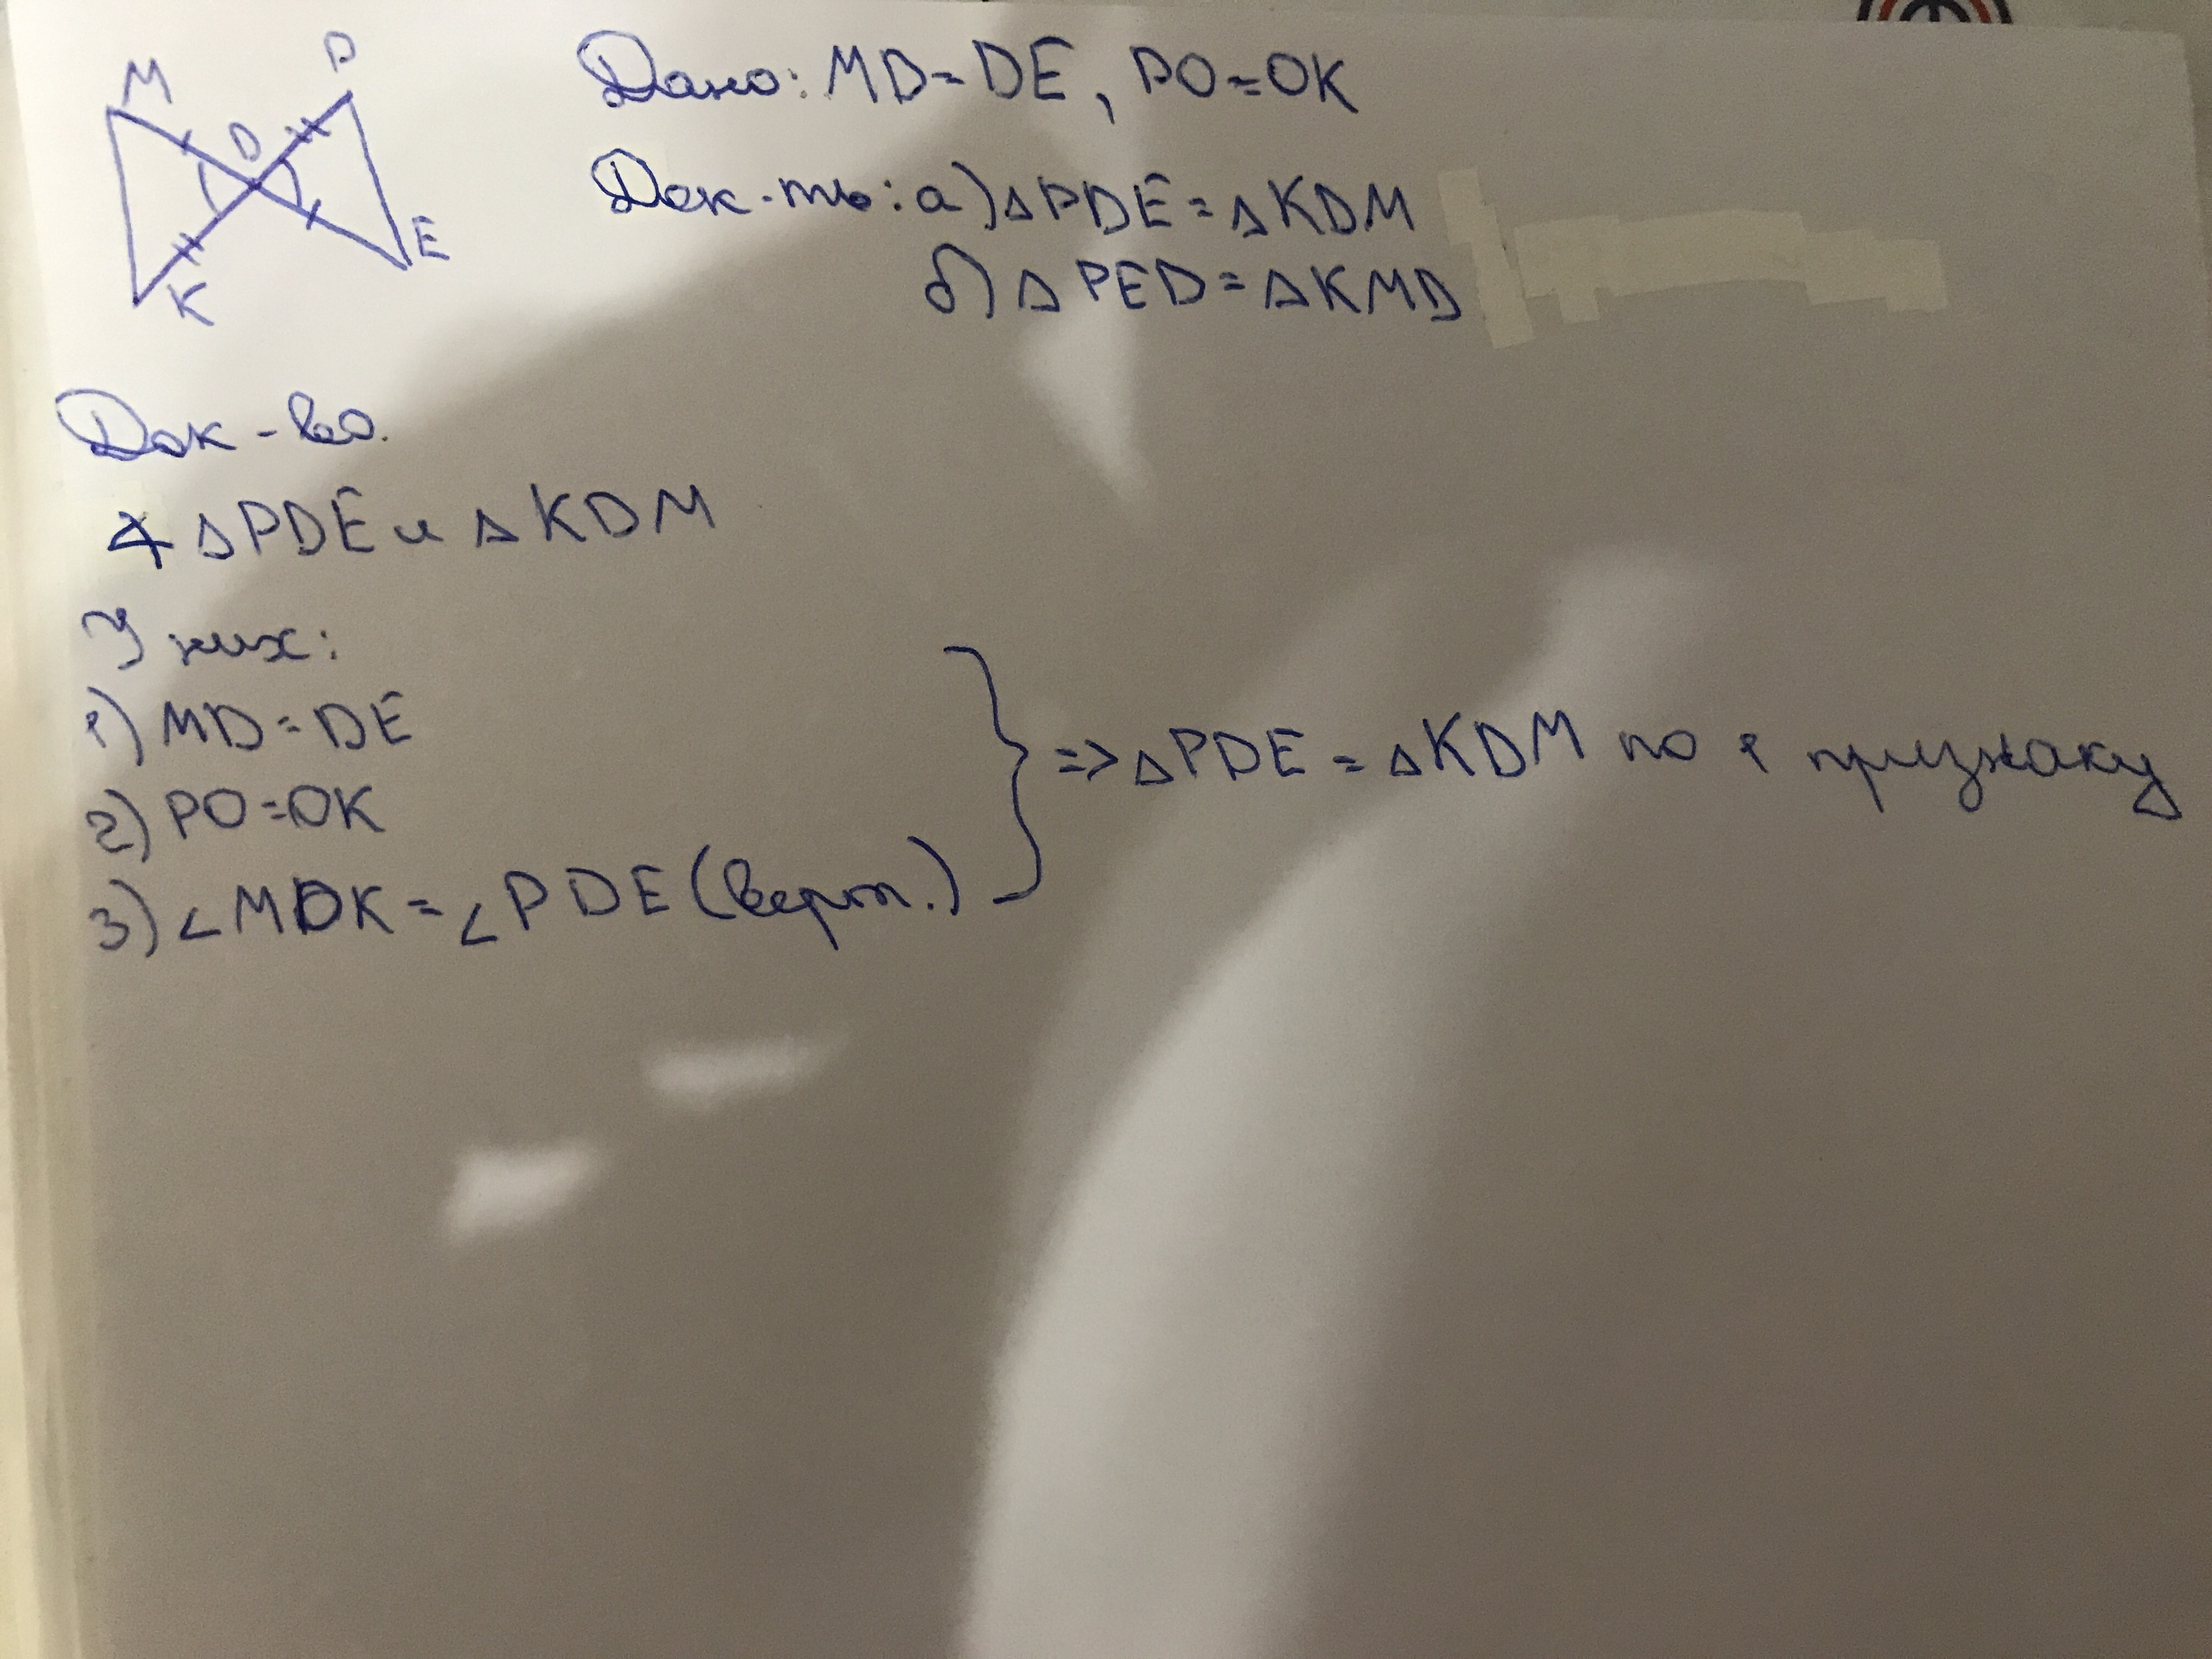 M
P
D
E
K
Дано: MD=DE, PO=OK
Док-ть: а) △PDE=△KDM
б) △PED=△KMD
Док-во.
∢ △PDE и △KDM
У них:
1) MD=DE
2) PO=OK
3) ∠MDK=∠PDE (верт.)
=> △PDE=△KDM по 1 признаку